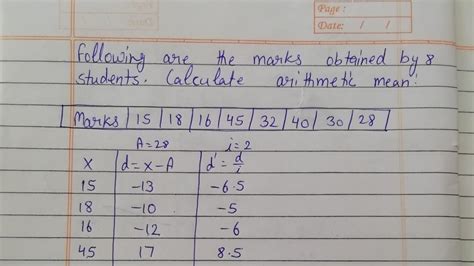 Page :
Date: / /
Following are the marks obtained by 8
students. Calculate arithmetic mean:
Marks | 15 | 18 | 16 | 45 | 32 | 40 | 30 | 28
A=28 i=2
X d=x-A d'=d/i
15 -13 -6.5
18 -10 -5
16 -12 -6
45 17 8.5